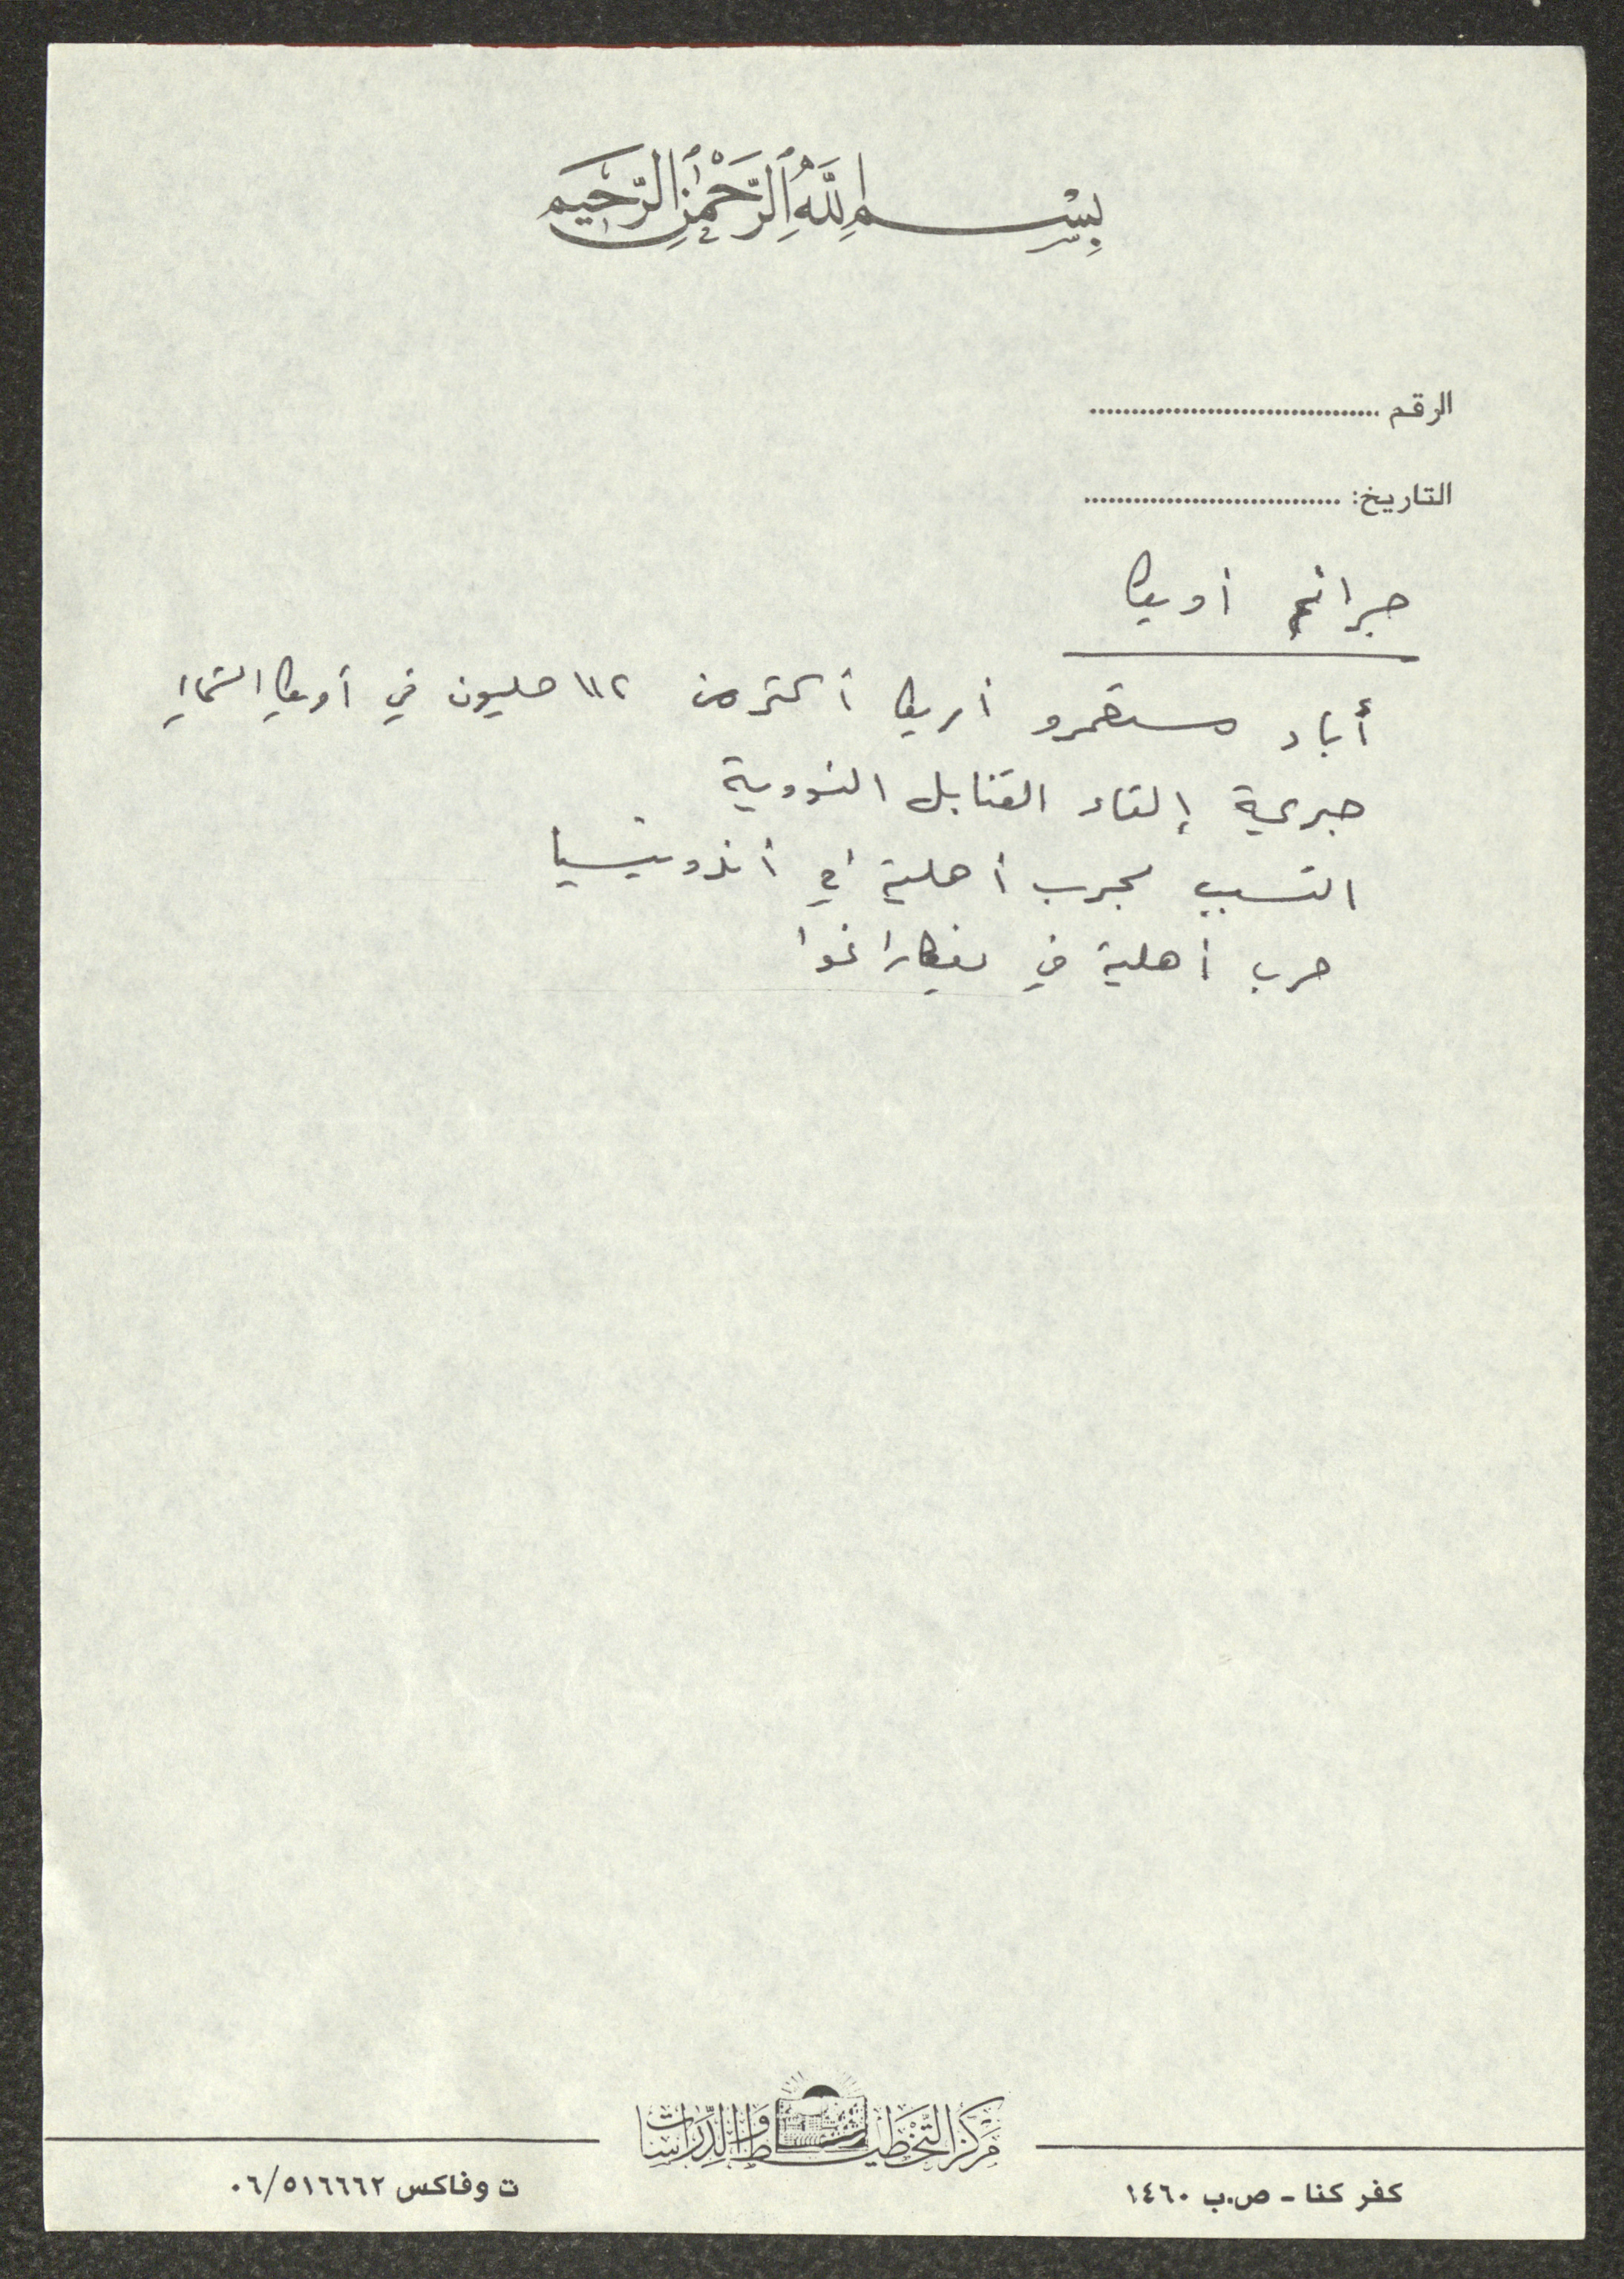 بسم الله الرحمن الرحيم
الرقم ..................................
التاريخ: ..............................
جرائم أمريكا
أباد مستعمرو أمريكا أكثر من ١١٢ مليون في أمريكا الشمالية
جريمة إلقاء القنابل النووية
التسبب بحرب أهلية في أندونيسيا
حرب أهلية في نيكاراغوا
مركز التخطيط والدراسات
كفر كنا - ص.ب ١٤٦٠
ت وفاكس ٠٦/٥١٦٦٦٢